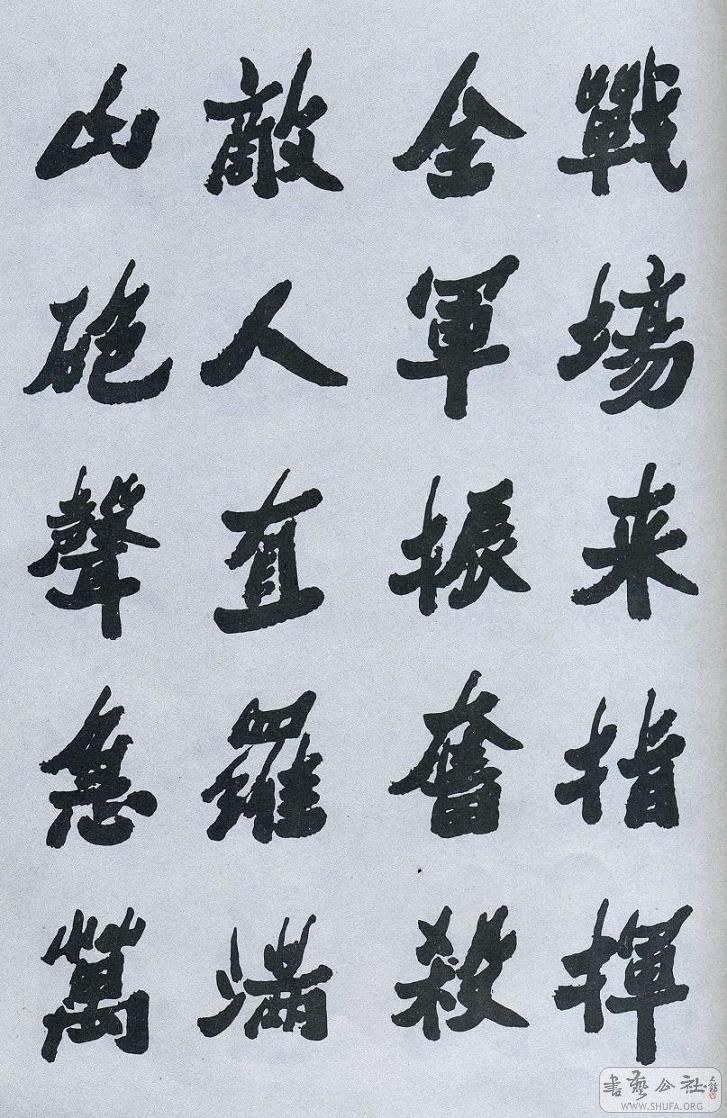 戰場来指揮
全軍振奮殺
敵人直羅滿
山砲聲急萬
書藝公社
WWW.SHUFA.ORG